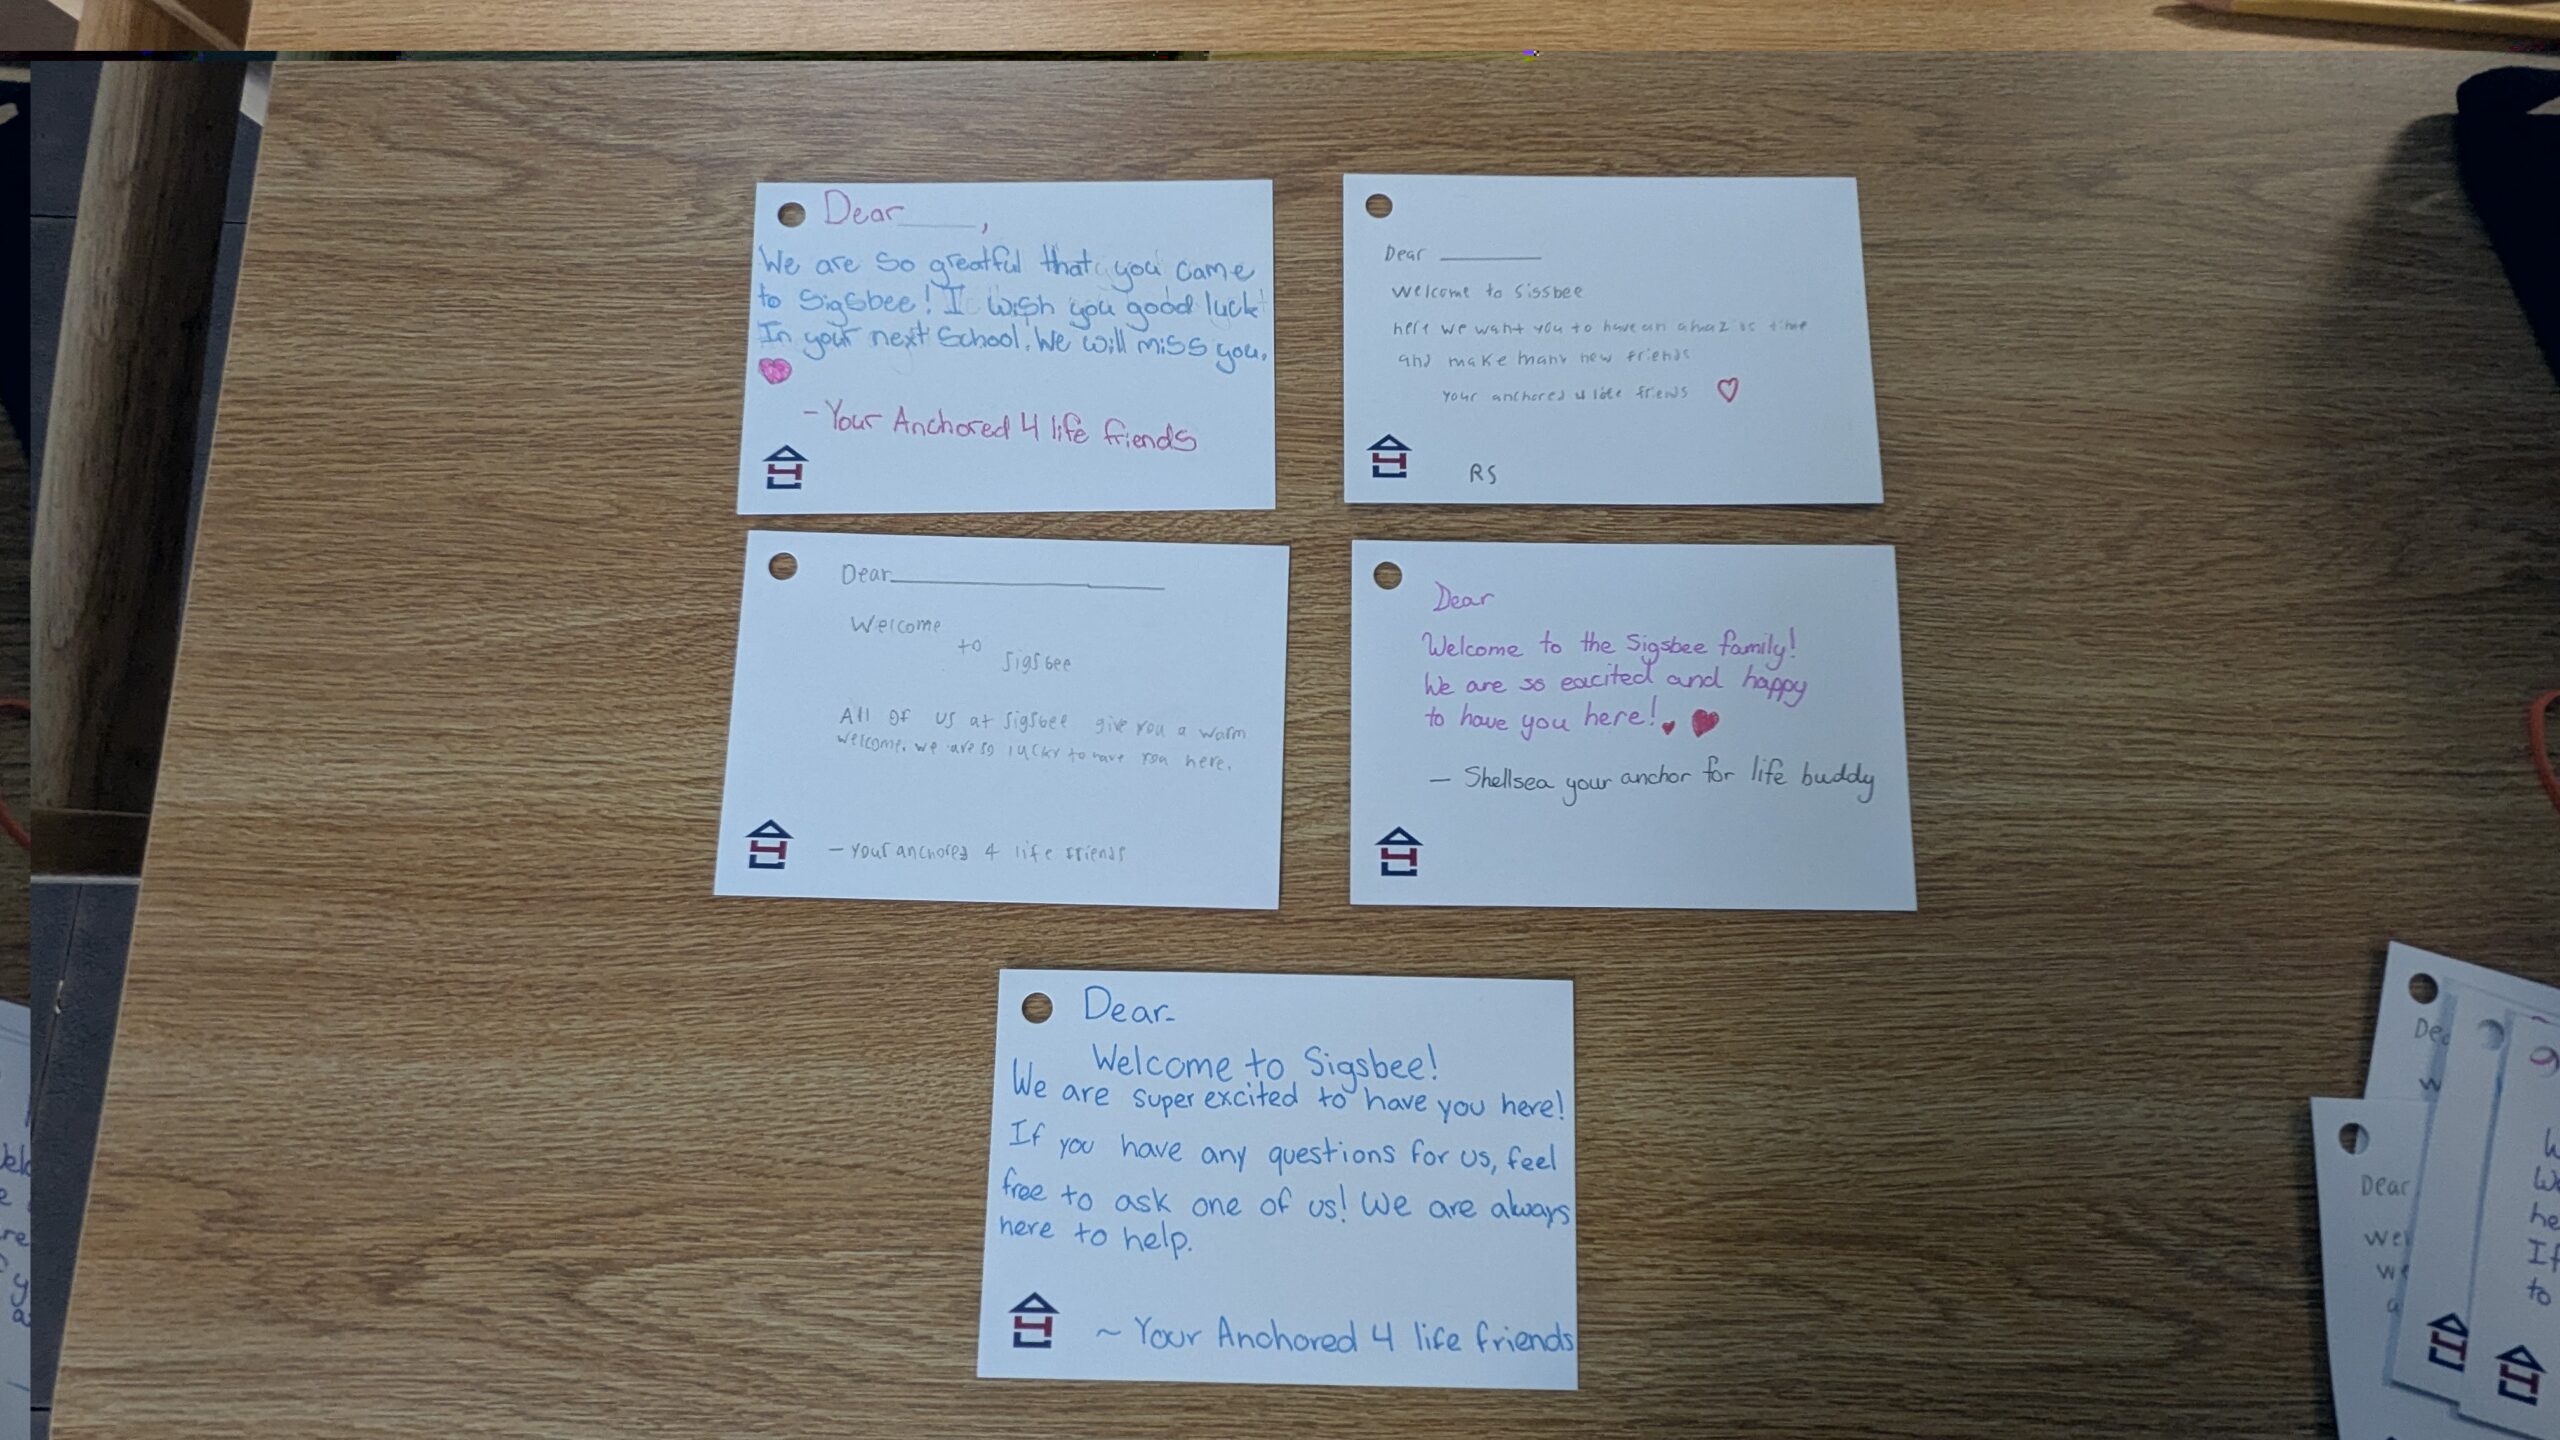 Dear____,
We are so greatful that you came
to Sigsbee! I wish you good luck
In your next School. We will miss you.
-Your Anchored 4 life friends
Dear ________
welcome to sissbee
here we want you to have an time
and make many new friends
your anchored 4 life friends
RS
Dear____________________
Welcome
to
sigsbee
All of us at sigsbee give you a warm
welcome. we are so lucky to have you here.
- your anchored 4 life friends
Dear
Welcome to the Sigsbee family!
We are so eacited and happy
to have you here!
- Shellsea your anchor for life buddy
Dear-
Welcome to Sigsbee!
We are super excited to have you here!
If you have any questions for us, feel
free to ask one of us! We are always
here to help.
~ Your Anchored 4 life friends
Dear
If
to